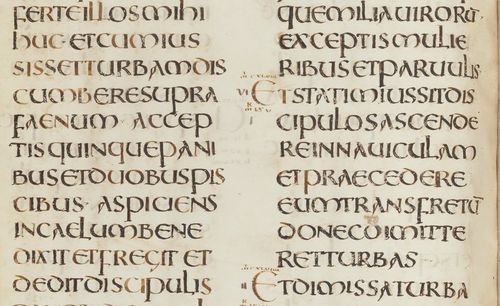 FERTEILLOSMIHI
HUC·ETCUMIUS
SISSETTURBAMDIS
CUMBERESUPRA
FAENUM·ACCEP
TISQUINQUEPANI
BUSETDUOBUSPIS
CIBUS·ASPICIENS
INCAELUMBENE
DIXITETFREGITET
DEDITDISCIPULIS
QUEMILIAUIRORŪ
EXCEPTISMULIE
RIBUSETPARUULIS·
ETSTATIMIUSSITDIS
CIPULOSASCENDE
REINNAUICULAM
ETPRAECEDERE
EUMTRANSFRETŪ
DONECDIMITTE
RETTURBAS
ETDIMISSATURBA